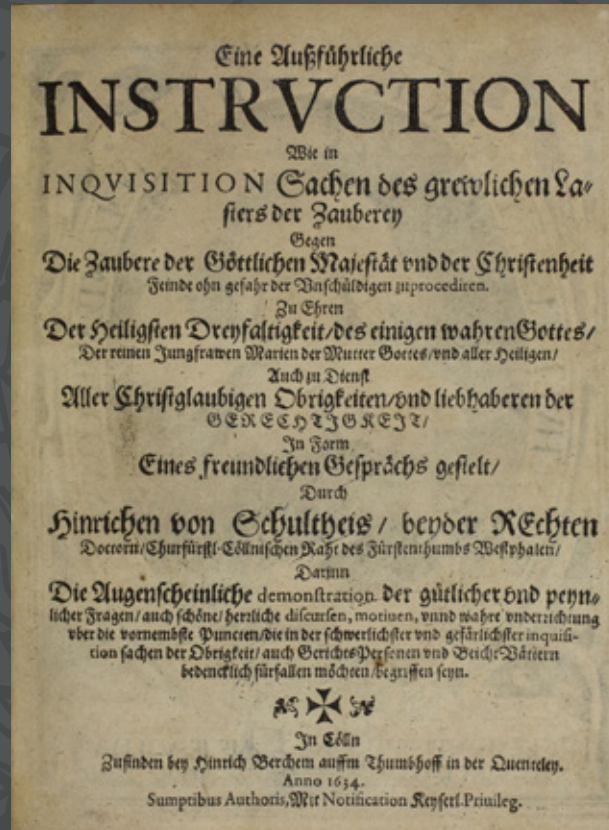 Eine Außführliche
INSTRVCTION
Wie in
INQVISITION Sachen des grewlichen La-
sters der Zauberey
Gegen
Die Zaubere der Göttlichen Majestät vnd der Christenheit
Feinde ohn gefahr der Vnschüldigen zuprocediren.
Zu Ehren
Der Heiligsten Dreyfaltigkeit/des einigen wahren Gottes/
Der reinen Jungfrawen Marien der Mutter Gottes/vnd aller Heiligen/
Auch zu Dienst
Aller Christglaubigen Obrigkeiten/vnd liebhaberen der
GERECHTIGKEIT/
In Form
Eines freundlichen Gesprächs gestelt/
Durch
Hinrichen von Schultheis/ beyder REchten
Doctorn/Churfürstl-Cöllnischen Raht des Fürstenthumbs Westphalen/
Darinn
Die Augenscheinliche demonstration der gütlicher vnd peyn-
licher Fragen/auch schöne/herrliche discursen, motiuen, vnnd wahre vnderrichtung
vber die vornembste Puncten/die in der schwerlichster vnd gefärlichster inquisi-
tion sachen der Obrigkeit/auch GerichtsPersonen vnd Beicht-Vättern
bedencklich fürfallen möchten/begriffen seyn.
In Cölln
Zufinden bey Hinrich Berchem auffm Thumbhoff in der Quenteley.
Anno 1634.
Sumptibus Authoris, Mit Notification Keyserl.Priuileg.